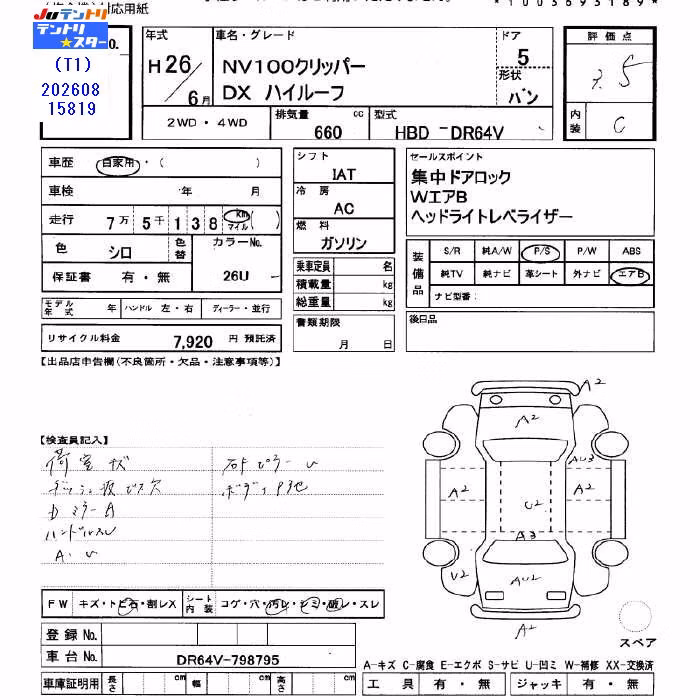 対応用紙
*1003693189*
JUテントリ
テントリ★スター
(T1)
202608
15819
No.
年式
H26/6月
車名・グレード
NV100クリッパー
DX ハイルーフ
ドア
5
形状
バン
評価点
3.5
内装
C
2WD・4WD
排気量
660
cc
型式
HBD-DR64V
車歴
自家用・( )
車検 年 月
走行 7万 5千 1 3 8 km マイル( )
色 シロ 色替 カラーNo. 26U
保証書 有・無
モデル年式 年 ハンドル 左・右 ディーラー・並行
リサイクル料金 7,920 円 預託済
シフト
IAT
冷房
AC
燃料
ガソリン
乗車定員 名
積載量 kg
総重量 kg
書類期限
月 日
セールスポイント
集中ドアロック
WエアB
ヘッドライトレベライザー
装備品
S/R 純A/W P/S P/W ABS
純TV 純ナビ 革シート 外ナビ エアB
ナビ型番:
後日品
【出品店申告欄(不良箇所・欠品・注意事項等)】
【検査員記入】
荷室キズ
ダッシュ板ビス穴
DミラーA
ハンドルスレ
A・U
ボディ
FW キズ・トビ石・割レX シート内装 コゲ・穴・汚レ・シミ・破レ・スレ
登録No.
車台No. DR64V-798795
車庫証明用 長さ cm 幅 cm 高さ cm
A2
A2
AU3
A2
A2
U2
A3
U2
AU2
A2
スペア
A-キズ C-腐食 E-エクボ S-サビ U-凹ミ W-補修 XX-交換済
工具 有・無 ジャッキ 有・無